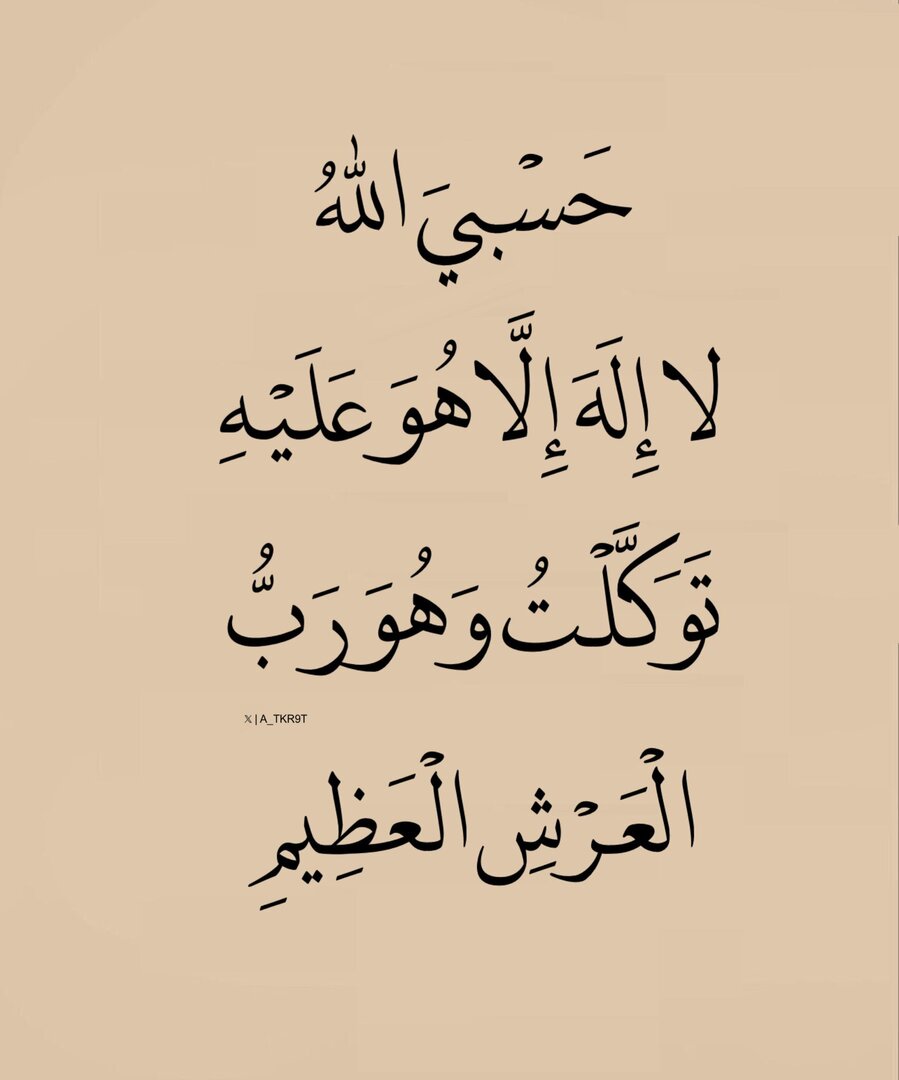 حَسْبيَ اللهُ
لا إِلَهَ إِلَّا هُوَ عَلَيْهِ
تَوَكَّلْتُ وَهُوَ رَبُّ
𝕏 | A_TKR9T
الْعَرْشِ الْعَظِيمِ